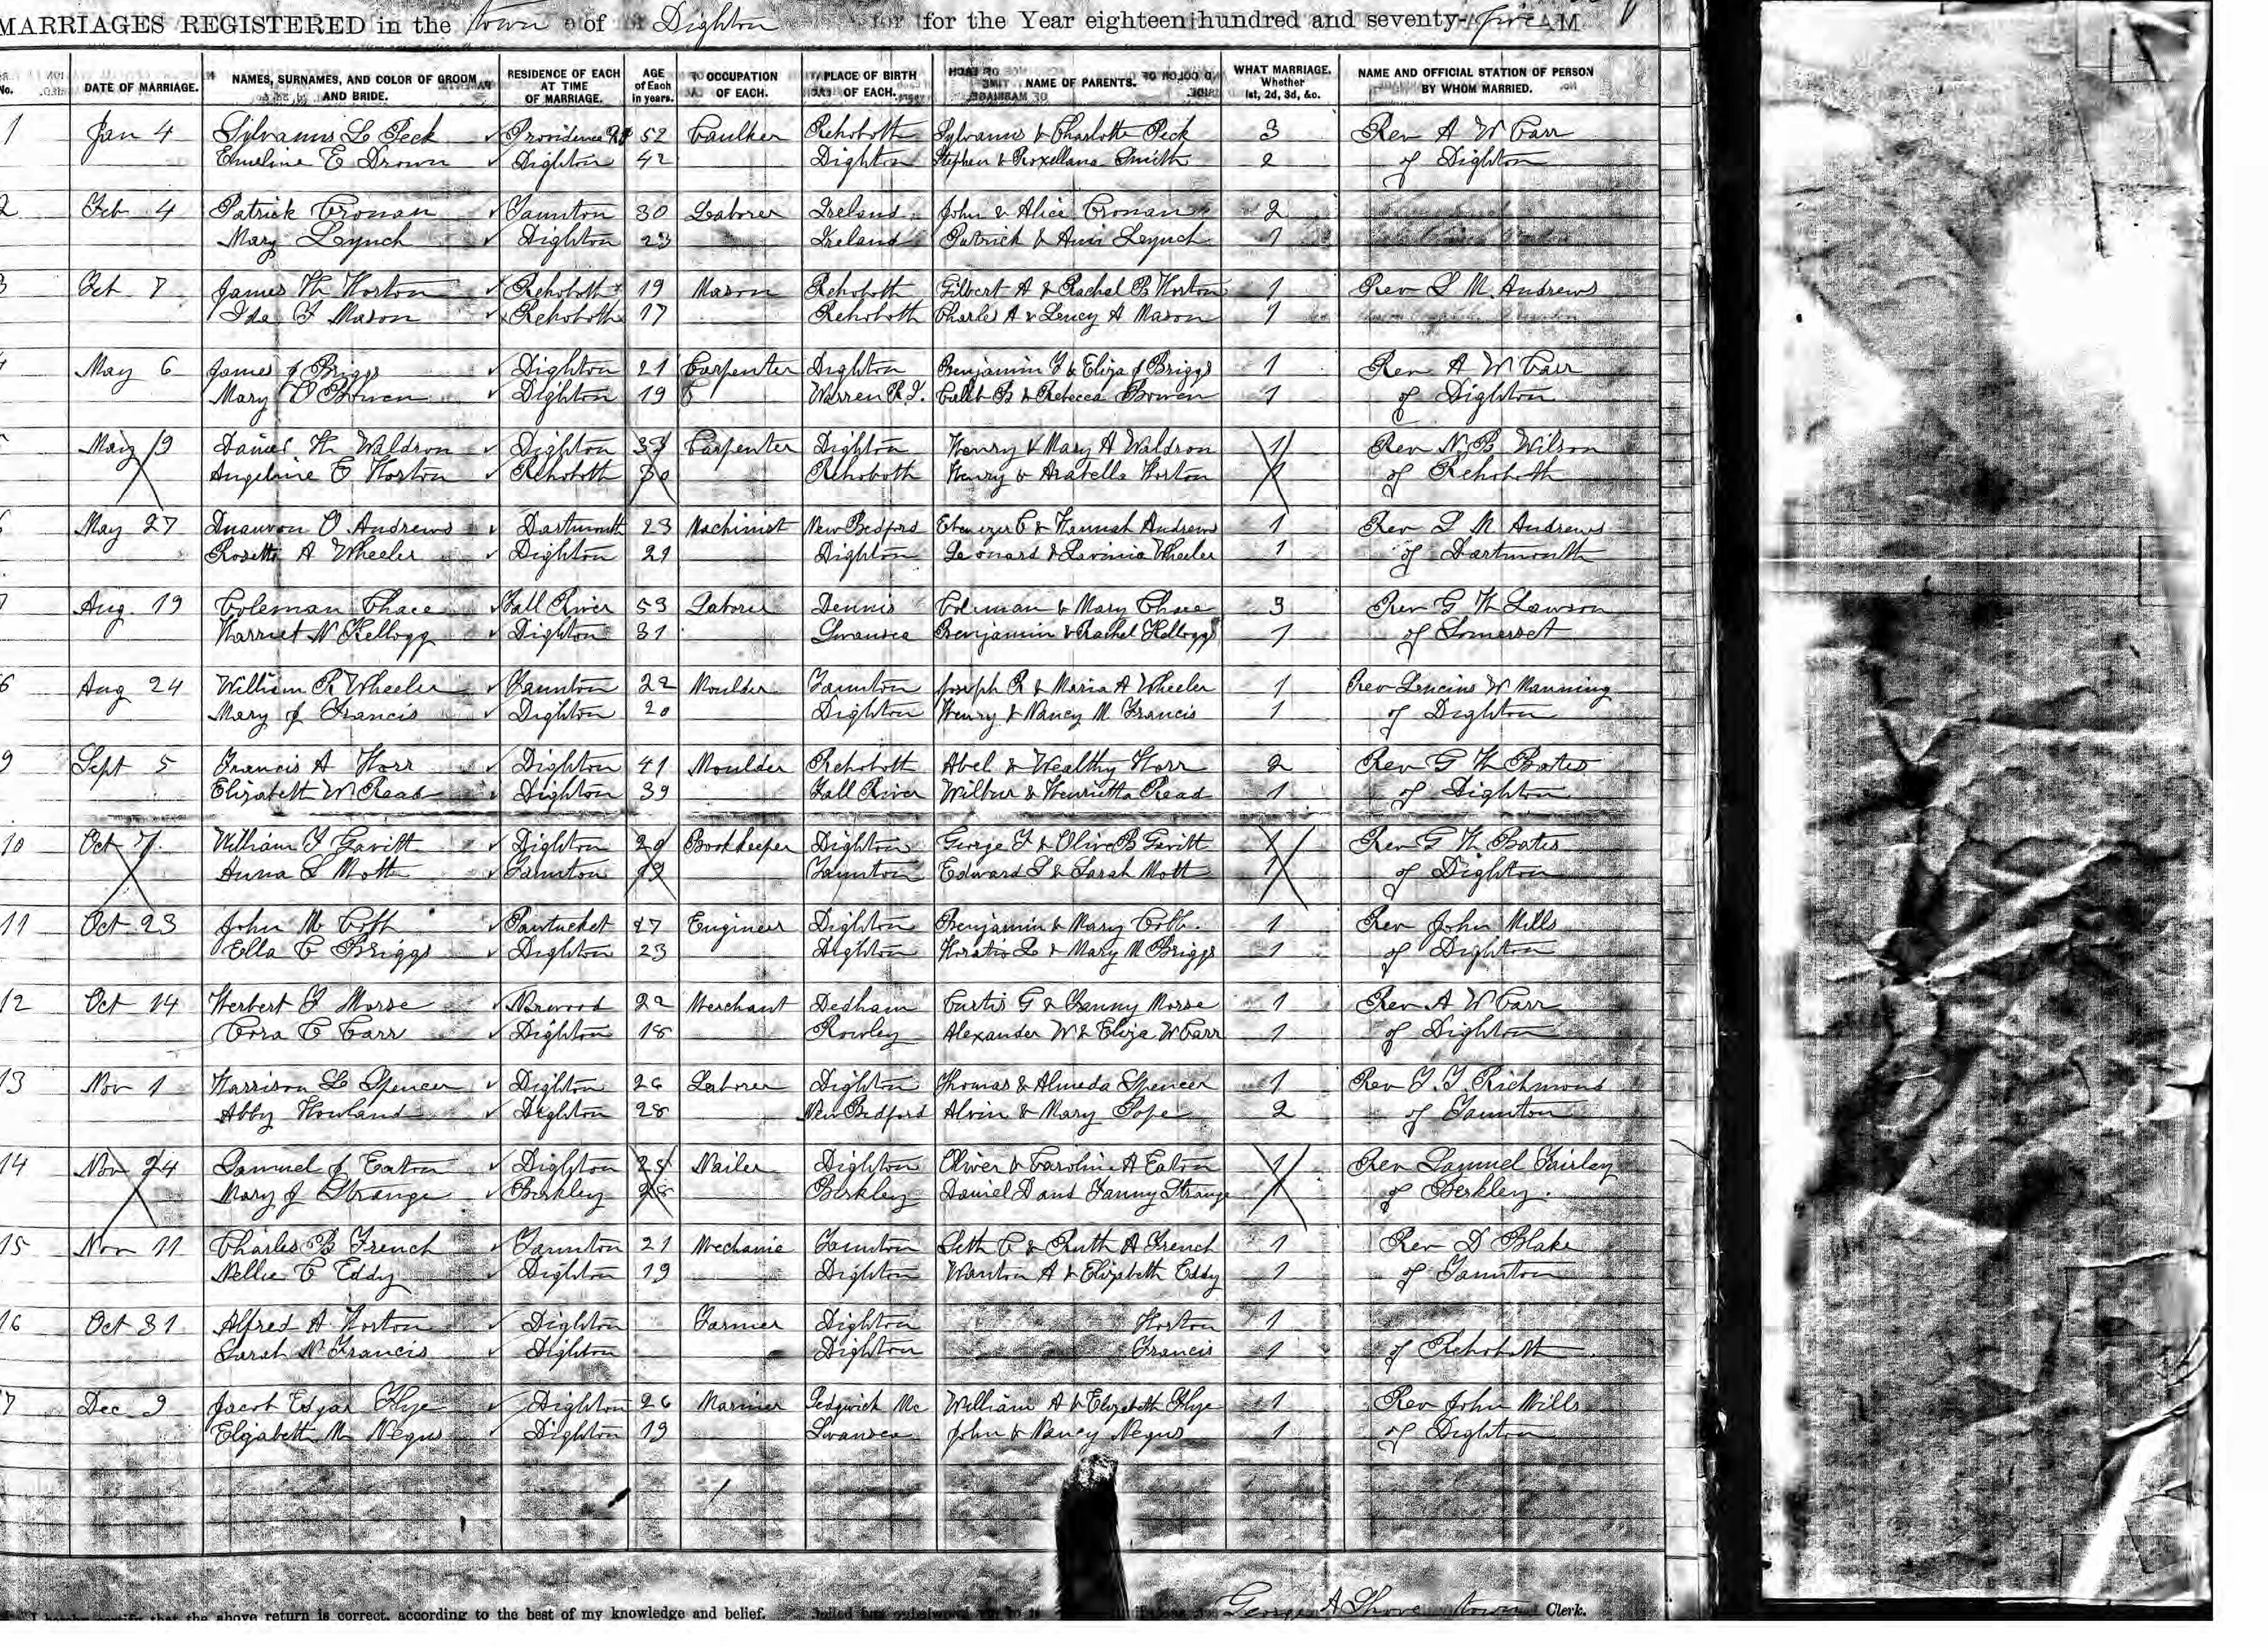 MARRIAGES REGISTERED in the town of Dighton for the Year eighteen hundred and seventy-five
No. DATE OF MARRIAGE. NAMES, SURNAMES, AND COLOR OF GROOM AND BRIDE. RESIDENCE OF EACH AT TIME OF MARRIAGE. AGE of Each in years. OCCUPATION OF EACH. PLACE OF BIRTH OF EACH. NAME OF PARENTS. WHAT MARRIAGE. Whether 1st, 2d, 3d, &c. NAME AND OFFICIAL STATION OF PERSON BY WHOM MARRIED.
1 Jan 4 Sylvanus L Peck Providence RI 52 Caulker Rehoboth Sylvanus & Charlotte Peck 3 Rev A W Carr
Emeline E Drown Dighton 42 Dighton Stephen & Roxellana Smith 2 of Dighton
2 Feb 4 Patrick Cronan Taunton 30 Laborer Ireland John & Alice Cronan 2
Mary Lynch Dighton 23 Ireland Patrick & Lynch 1
3 7 James H Horton Rehoboth 19 Mason Rehoboth Gilbert A & Rachel B Horton 1 Rev S M. Andrews
Ida F Mason Rehoboth 17 Rehoboth Charles A & Lucy A Mason 1
4 May 6 James J Briggs Dighton 21 Carpenter Dighton Benjamin F & Eliza J Briggs 1 Rev A W Carr
Mary O Bowen Dighton 19 Warren R.I. Caleb B & Rebecca Bowen 1 of Dighton
May 19 Daniel H Waldron Dighton Carpenter Dighton Henry & Mary A Waldron 1 Rev N. B Wilson
Angeline E Horton Rehoboth 30 Rehoboth Henry & Arabella Horton 1 of Rehoboth
May 27 O Andrews Dartmouth 23 Machinist New Bedford Ebenezer C & Hannah Andrews 1 Rev S M Andrews
Rosetta A Wheeler Dighton 21 Dighton Leonard & Lavinia Wheeler 1 of Dartmouth
7 Aug. 19 Coleman Chace Fall River 53 Laborer Dennis Coleman & Mary Chace 3 Rev G H Lawson
Harriet N Kellogg Dighton 31 Swansea Benjamin & Rachel Kellogg 1 of Somerset
Aug 24 William R Wheeler Taunton 22 Moulder Taunton Joseph R & Maria A Wheeler 1 Rev Lucius W Manning
Mary J Francis Dighton 20 Dighton Henry & Nancy M. Francis 1 of Dighton
9 Sept 5 Francis A Horr Dighton 41 Moulder Rehoboth Abel & Wealthy Horr 2 Rev G H Bates
Elizabeth W Read Dighton 39 Fall River Wilbur & Henrietta Read 1 of Dighton
10 Oct 7. William F Gavitt Dighton Bookkeeper Dighton George F & Olive B Gavitt 1 Rev G H Bates
Anna S Mott Taunton 19 Taunton Edward S & Sarah Mott 1 of Dighton
11 Oct 23 John M Cobb Pawtucket 27 Engineer Dighton Benjamin & Mary Cobb. 1 Rev John Mills
Ella C Briggs Dighton 23 Dighton Horatio L & Mary M Briggs 1 of Dighton
12 Oct 14 Herbert F Morse Norwood 22 Merchant Dedham Curtis G & Fanny Morse 1 Rev A W Carr
Cora C Carr Dighton 18 Rowley Alexander W & Eliza W Carr 1 of Dighton
13 Nov 1 Harrison L Spencer Dighton 26 Laborer Dighton Thomas & Almeda Spencer 1 Rev T. T. Richmond
Abby Howland Dighton 28 New Bedford Alvin & Mary Pope 2 of Taunton
14 Nov 24 Samuel J Eaton Dighton 25 Nailer Dighton Oliver & Caroline A Eaton 1 Rev Samuel Fairley
Mary J Strange Berkley 28 Berkley Daniel D and Fanny Strange 1 of Berkley.
15 Nov 11 Charles B French Taunton 21 Mechanic Taunton Seth C & Ruth A French 1 Rev D Blake
Nellie C Eddy Dighton 19 Dighton Wanton A & Elizabeth Eddy 1 of Taunton
16 Oct 31 Alfred A Horton Dighton Farmer Dighton Horton 1
Sarah N Francis Dighton Dighton Francis 1 of Rehoboth
7 Dec 9 Jacob Edgar Flye Dighton 26 Mariner Sedgwick Me William A & Elizabeth Flye 1 Rev John Mills
Elizabeth M Negus Dighton 19 Swansea John & Nancy Negus 1 of Dighton
I hereby certify that the above return is correct, according to the best of my knowledge and belief. George A Shove town Clerk.